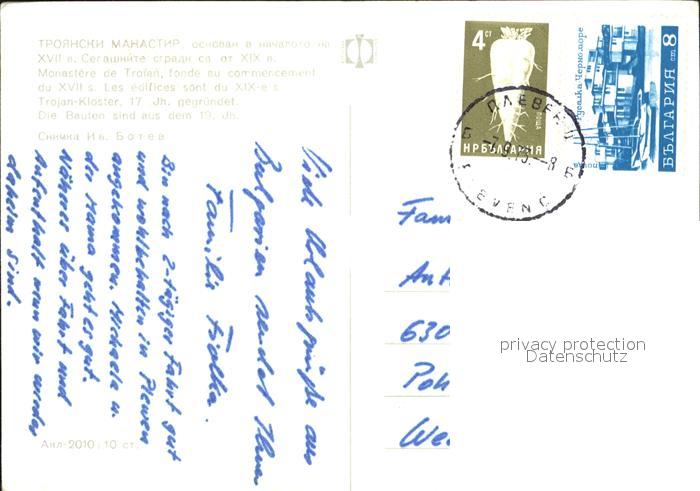 ТРОЯНСКИ МАНАСТИР, основан в началото на
XVII в. Сегашните сгради са от XIX в.
Monastère de Trojan, fondé au commencement
du XVII s. Les édifices sont du XIX-e s.
Trojan-Kloster, 17. Jh. gegründet.
Die Bauten sind aus dem 19. Jh.
Снимка Ив. Ботев
Viele Urlaubsgrüße aus
Bulgarien sendet Ihnen
Familie Fiolka.
Bin nach 2-tägiger Fahrt gut
und wohlbehalten in Plewen
angekommen. Michaela u.
der Mama geht es gut.
Näheres über Fahrt und
Aufenthalt wenn wir wieder
daheim sind.
Акл-2010; 10 ст.
4 СТ
ПОЩА
НР БЪЛГАРИЯ
русалка Черно море
поща
БЪЛГАРИЯ ст 8
ПЛЕВЕН Ц
PLEVEN C
Fam
Ant
630
Poh
We
privacy protection
Datenschutz